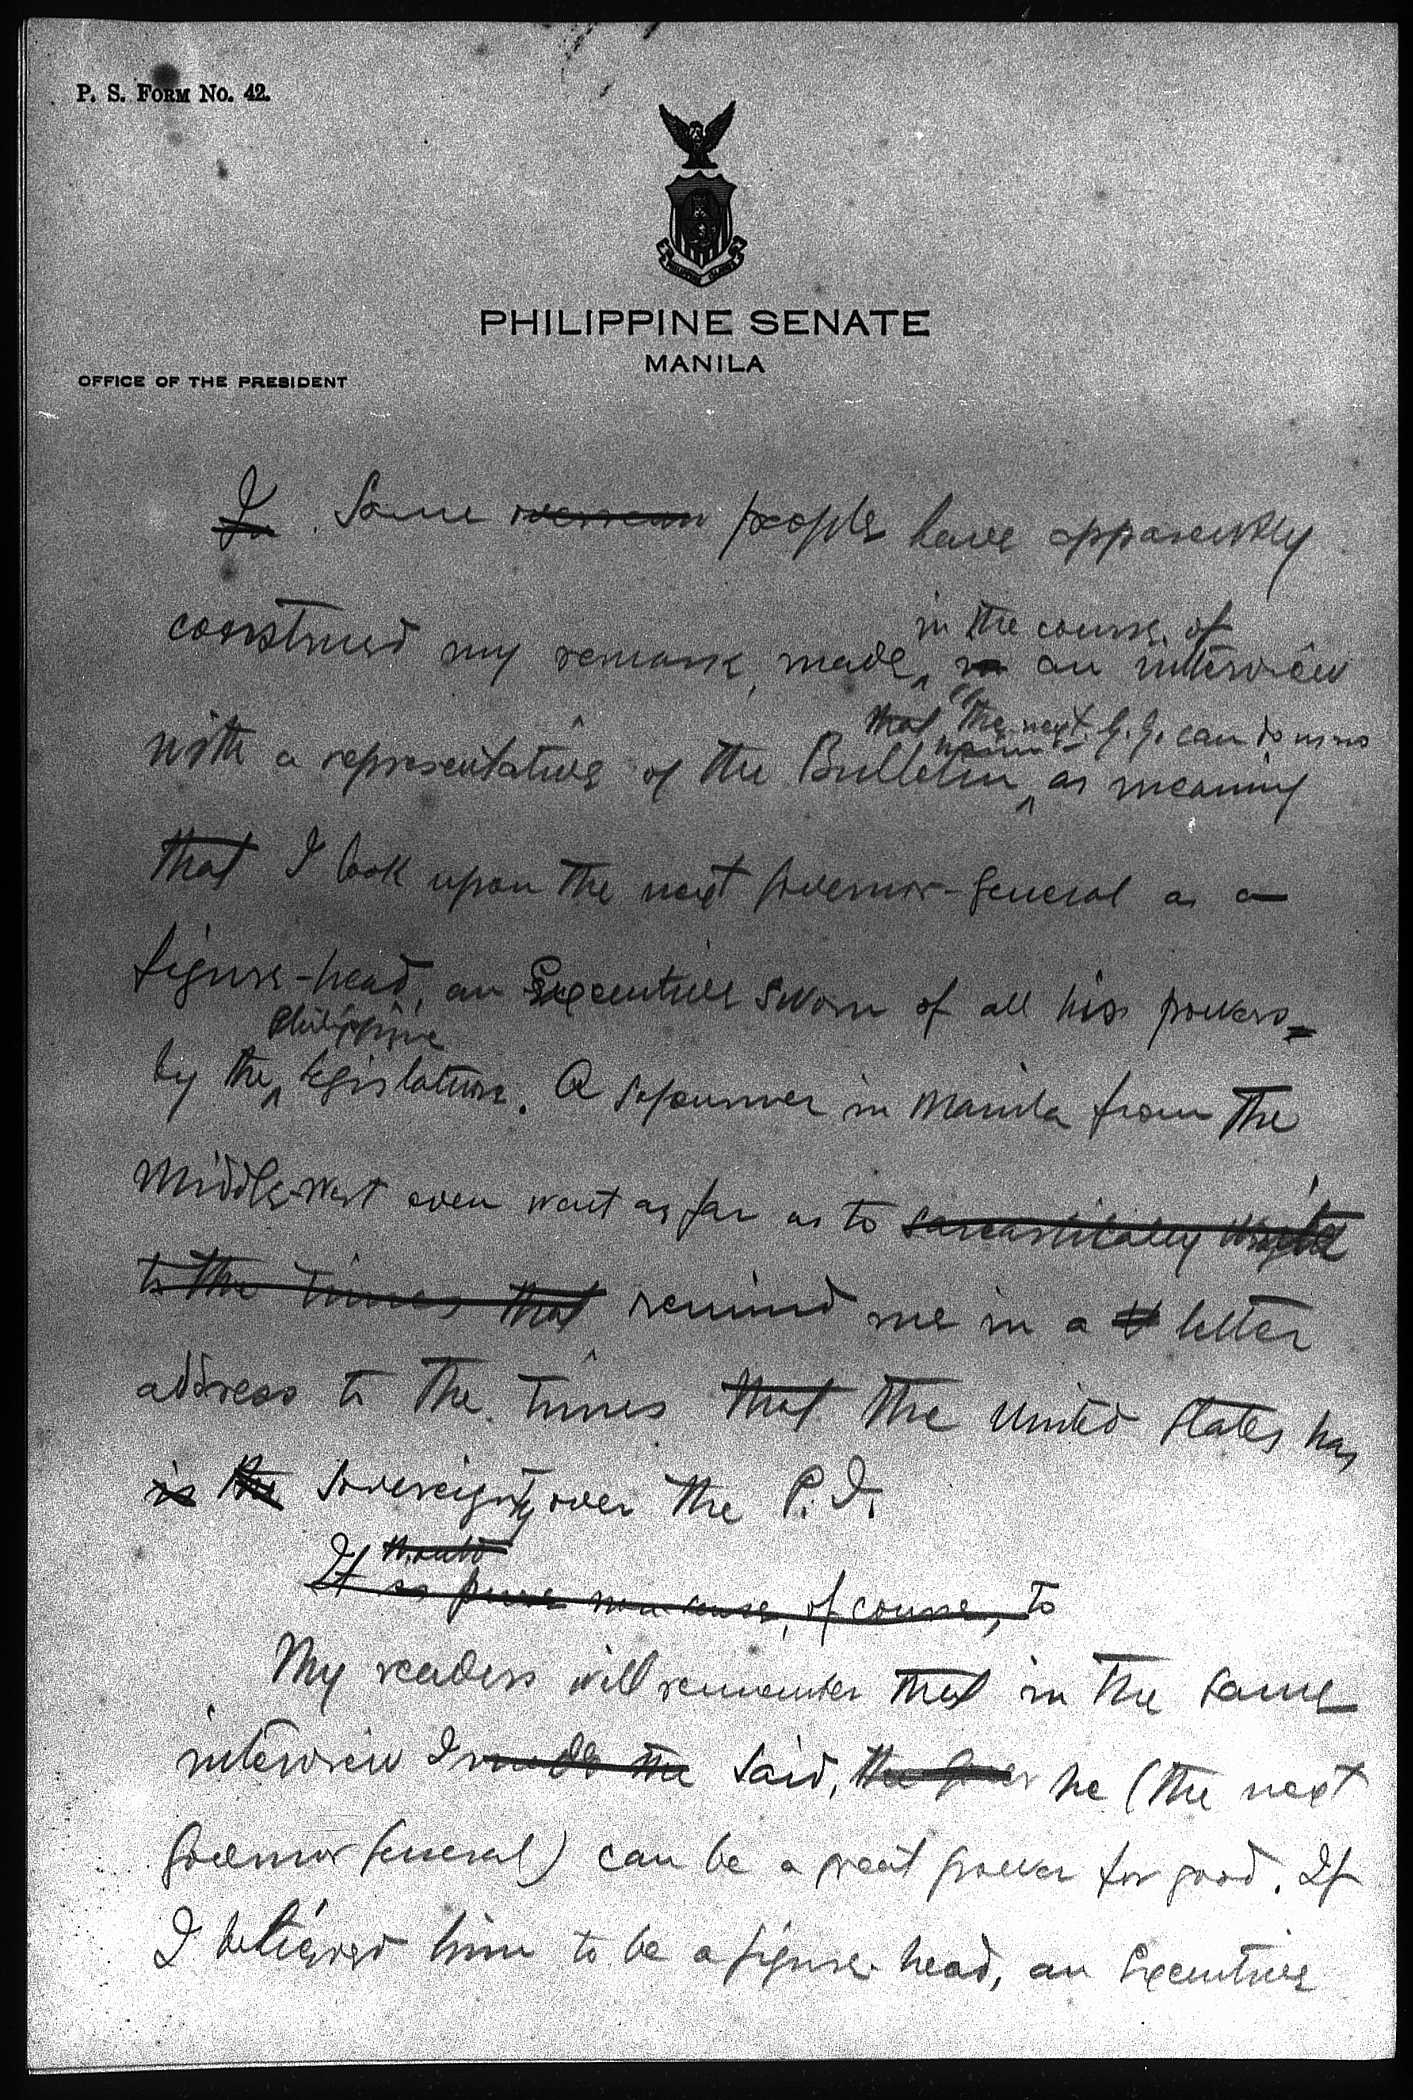 P. S. FORM NO. 42.
PHILIPPINE SENATE
MANILA
OFFICE OF THE PRESIDENT
In. Some people have apparently
in the course of
construed my remark, made, in an interview
that the next G. G. can do us no
with a representative of the Bulletin as meaning
that I look upon the next Governor-General as a
figure-head, an Executive sworn of all his powers
Philippine
by the legislature. A sojourner in Manila from the
Middle-West even went as far as to sarcastically
to the Times that remind me in a letter
address to the Times that the United States has
is the sovereignty over the P. I.
would
It is pure nonsense, of course, to
My readers will remember that in the same
interview I made the said, the he (the next
Governor General) can be a great power for good. If
I believed him to be a figure-head, an Executive